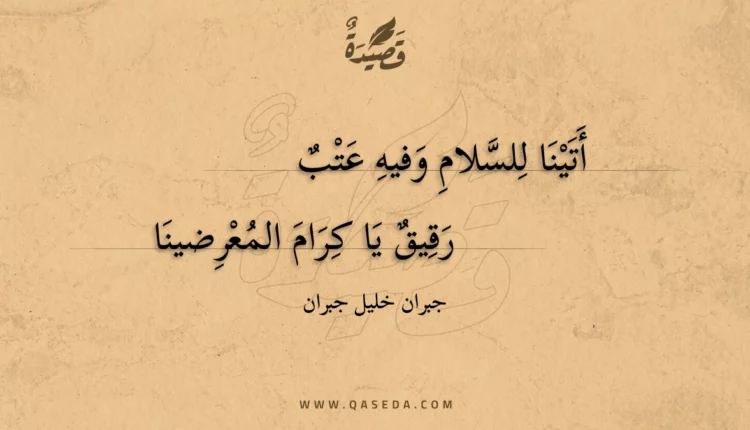 قَصِيْدَةٌ
أَتَيْنَا لِلسَّلامِ وَفيهِ عَتْبٌ
رَقِيقٌ يَا كِرَامَ المُعْرِضينَا
جبران خليل جبران
WWW.QASEDA.COM